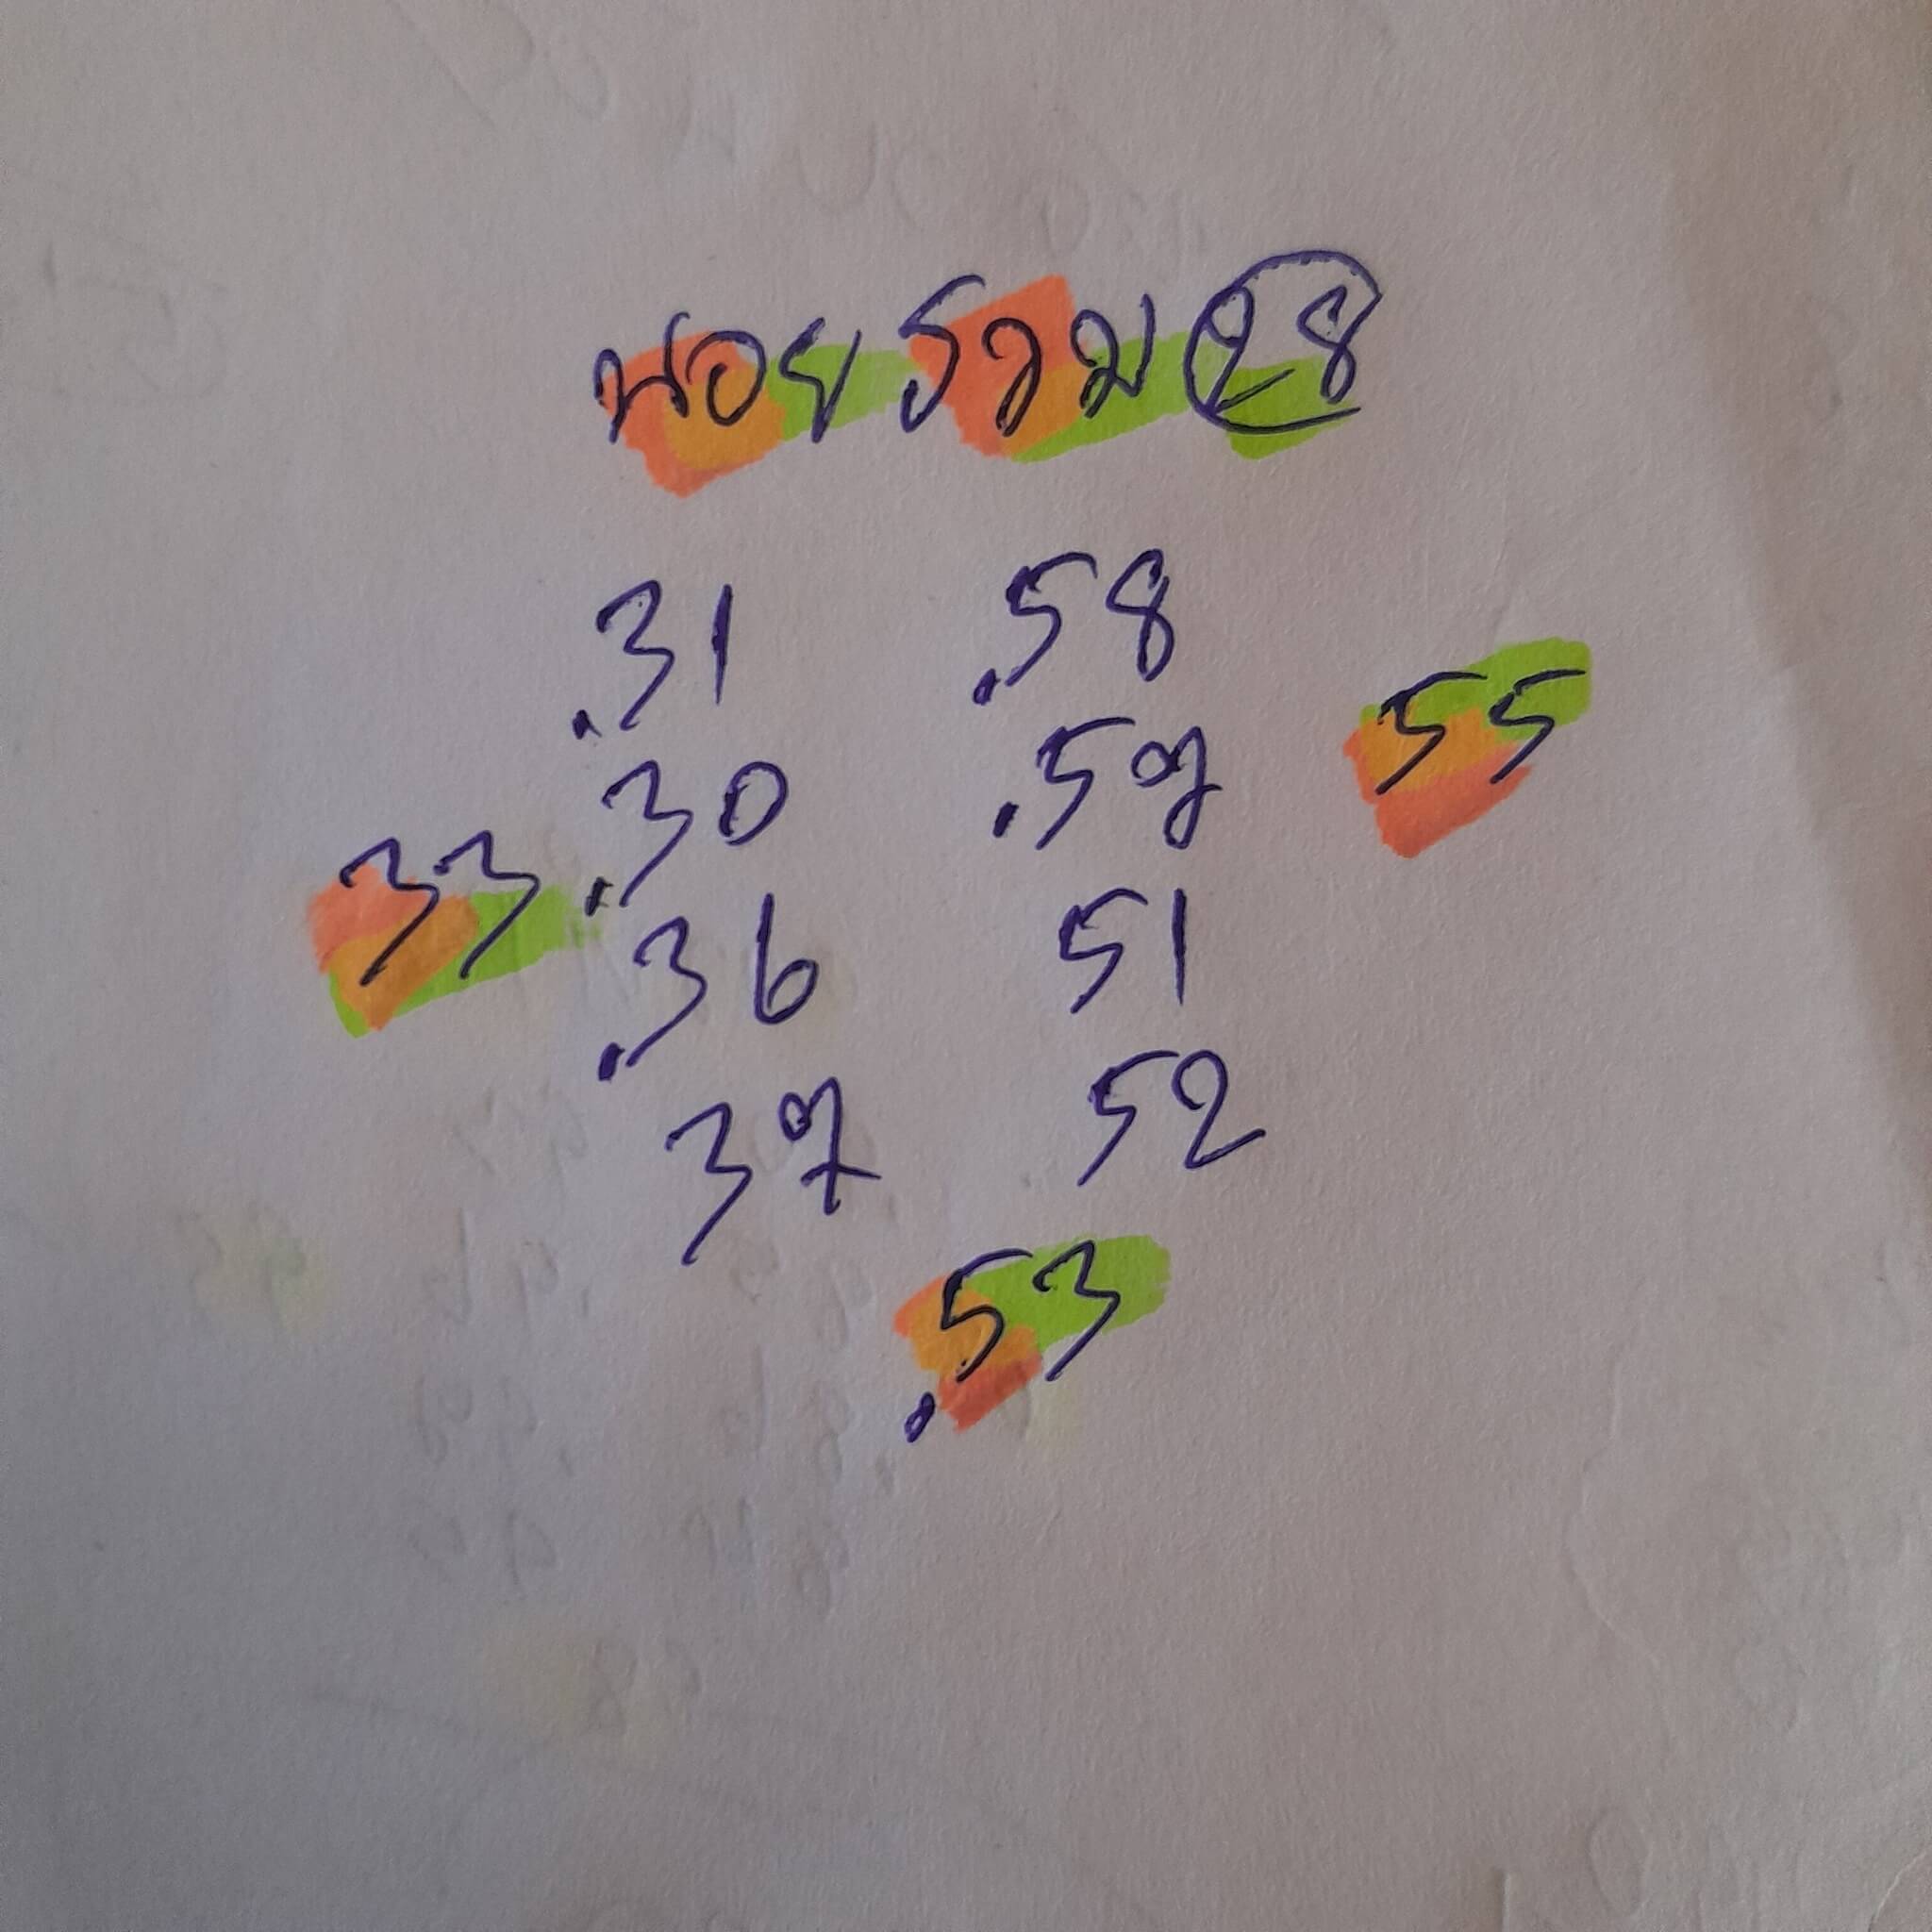 นอย รวม 28
.31 .58
.30 .57 55
33 .36 51
37 52
.53